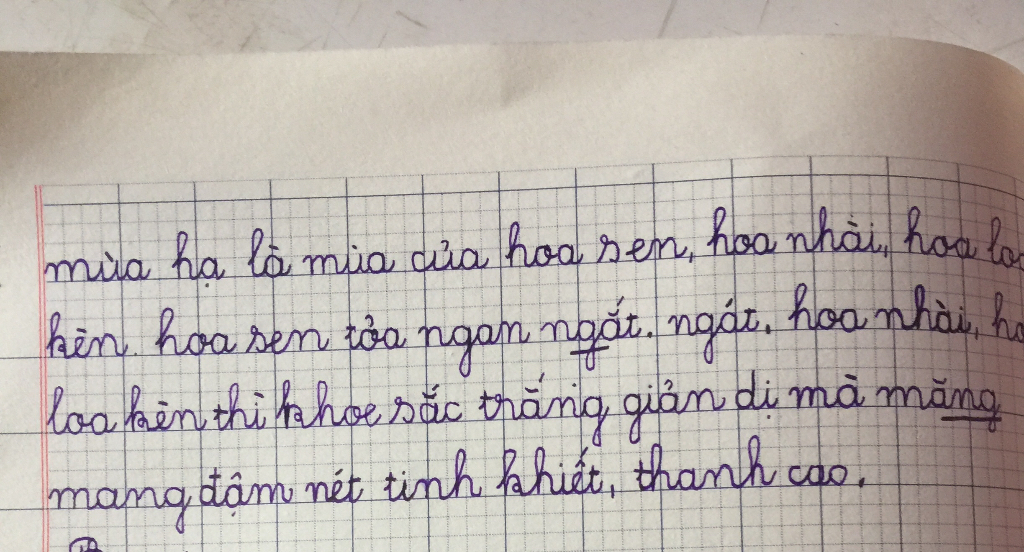 mùa hạ là mùa của hoa sen, hoa nhài, hoa loa
kèn. hoa sen tỏa ngan ngắt. ngát. hoa nhài, ho
loa kèn thì khoe sắc trắng giản dị mà măng
mang đậm nét tinh khiết, thanh cao.